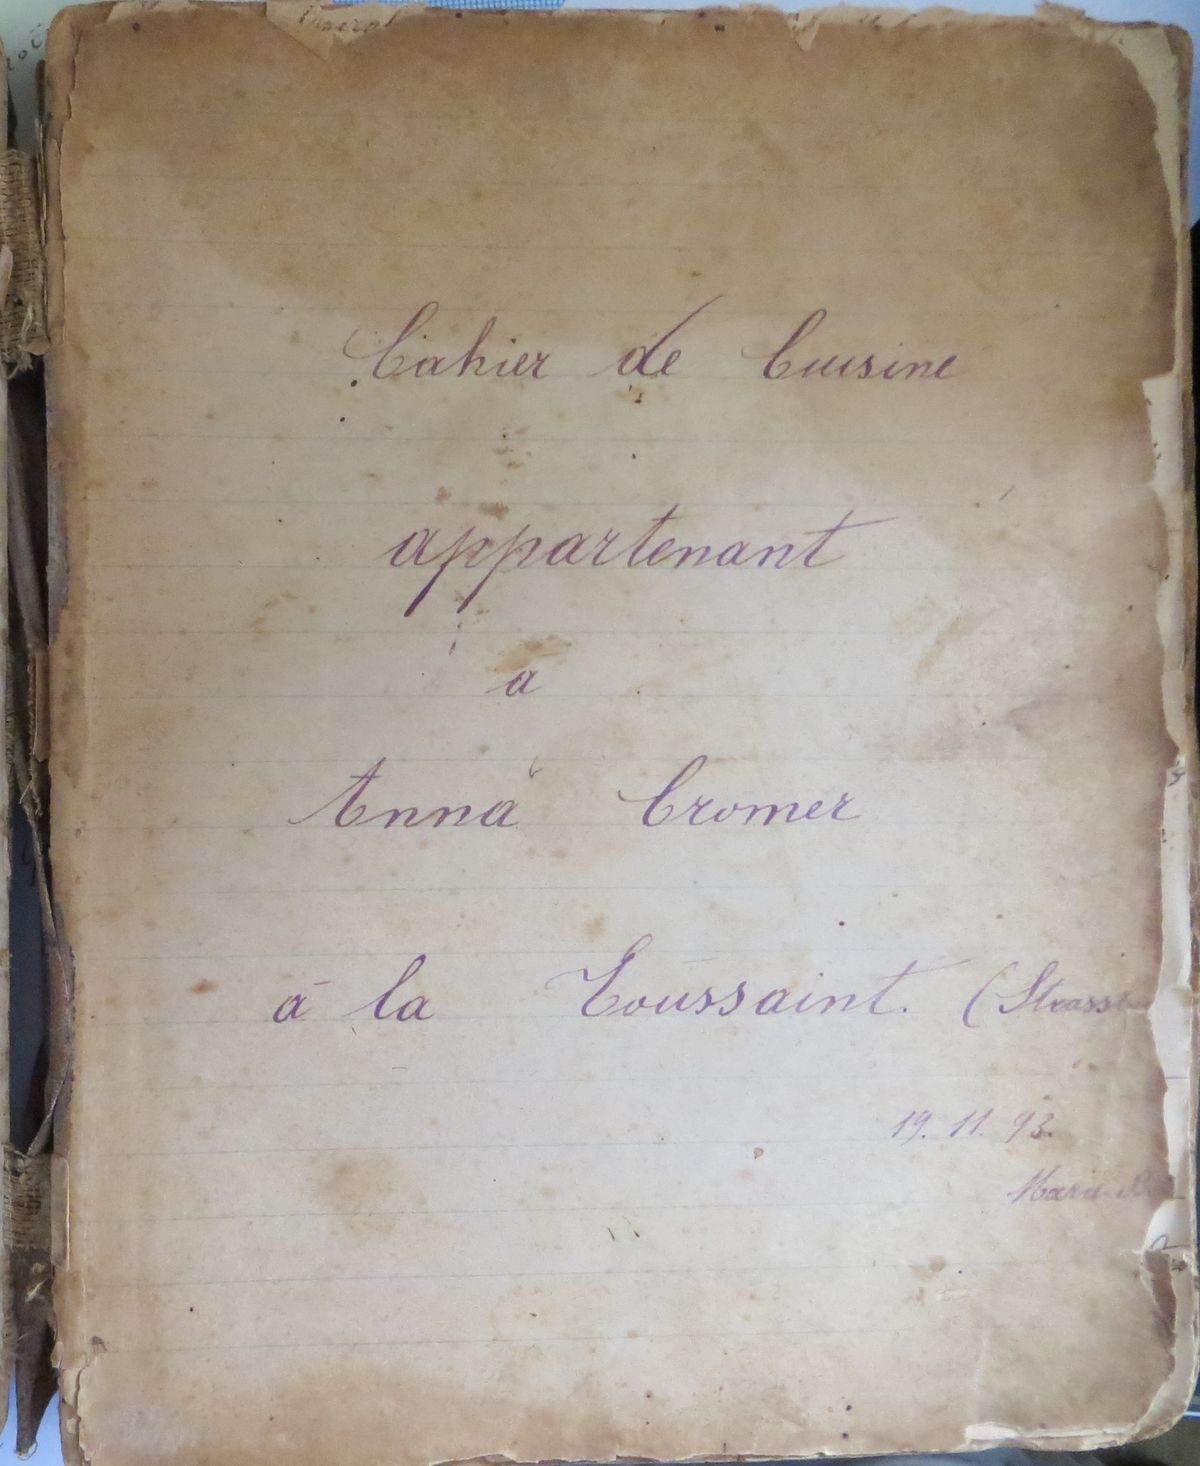 Cahier de Cuisine
appartenant
a
Anna Cromer
à la Toussaint. (Strassb
19. 11. 93.
Marie